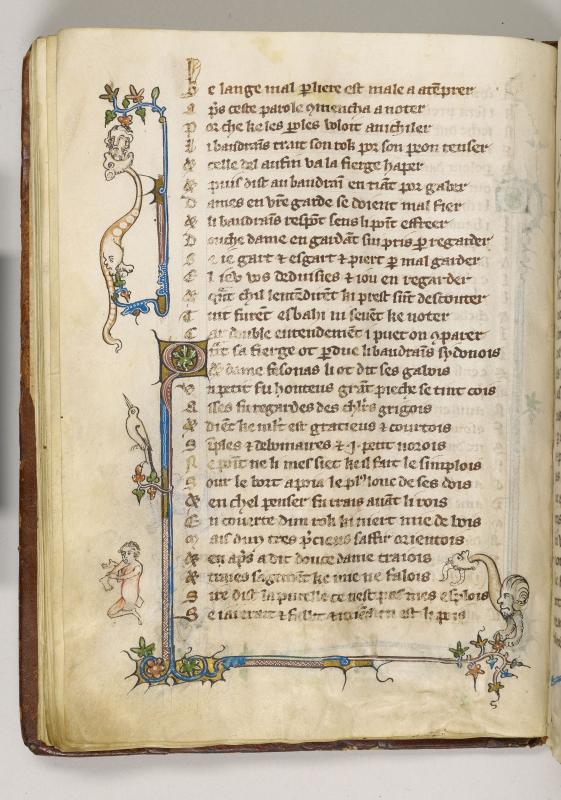 e lange mal pliere est male a atēprer
A ps ceste parole ꝯmencha a noter
P or che ke les poles voloit anichiler
L i baudrains traut son rok por son peon tenser
& celle del aufin va la fierge haper
& puis dist au baudrai en riāt por gaber
D ames en vr̄e garde se doient mal fier
& li baudrais respōt sens li poīt effreer
D ouche dame en gardāt sui pris p regarder
ie gart & esgart & piert p mal garder
E l ieu vos deduisies & iou en regarder
& qāt chil lentēdirēt ki prest sūt descouter
T uit furēt esbahi ni seuēt ke noter
C ar double entendemēt i puet on ꝯparer
Q āt sa fierge ot pdue li baudrais
& dame fesonas li ot dit ses gabois
V n petit fu honteus grāt pieche se tint cois
A sses fu regardes des chlrs grigois
& diēt ke mlt est gratieus & courtois
S īples & debonaires & .i. petit norois
N e poīt ne li messiet ke il fait le simplois
S our le bort apoia le plꝰ lonc de ses dois
& en chel penser fu trais auāt li rois
E n couerte dun rok ki niert mie de bois
M ais dun tres pcieus saffir orientois
& en aps a dit douce dame traiois
& traies sagemēt ke mie ne falois
S ire dist la pucelle ce nest pas mes esplois
S e iauerait & en est li pois